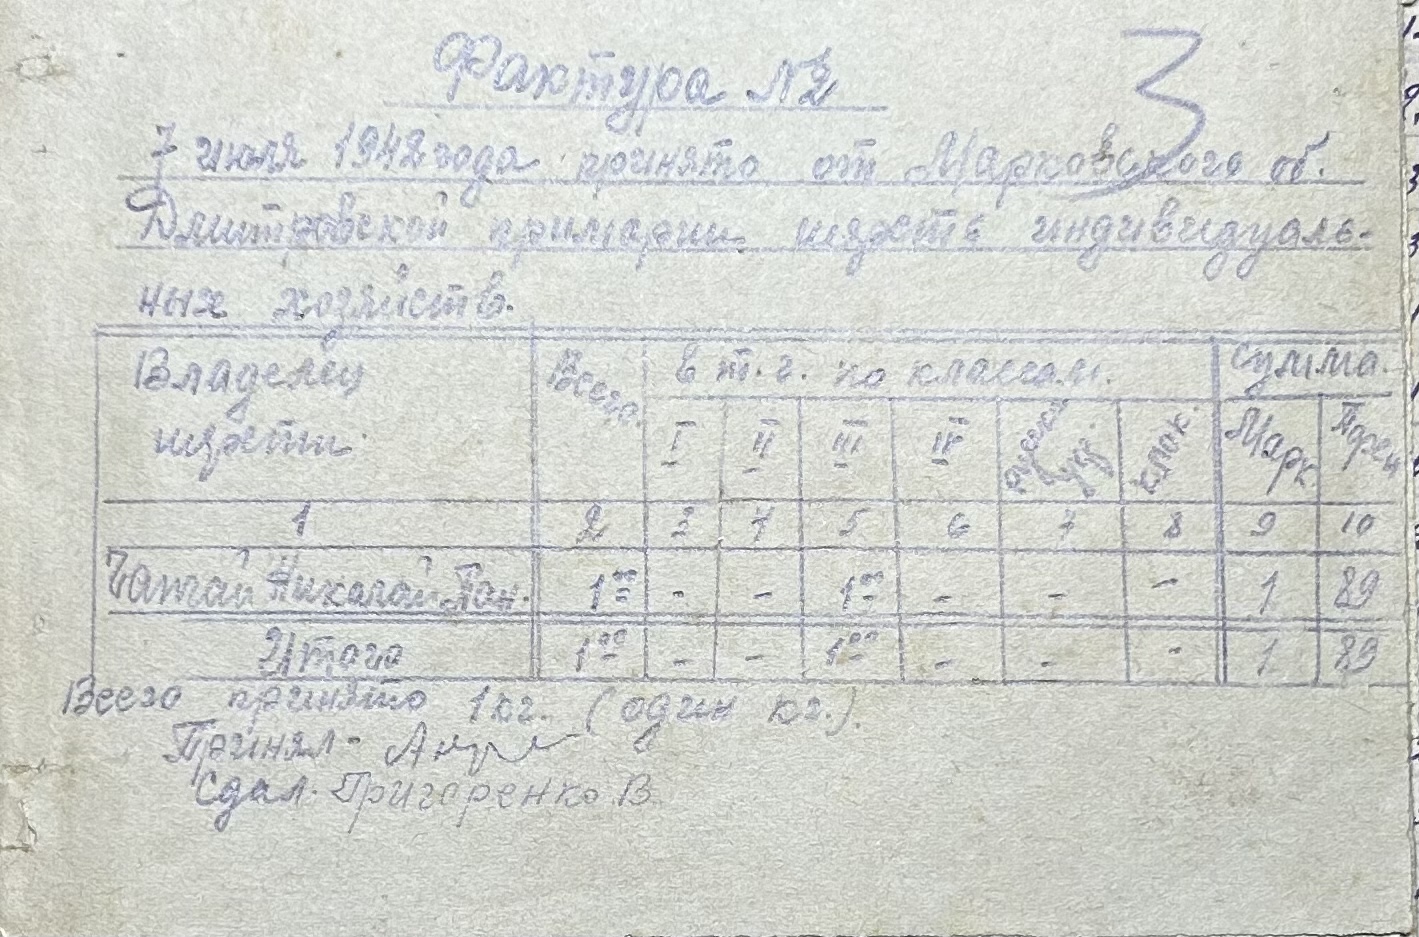 3
Фактура №2
7 июля 1942 года принято от Марковского об.
Дмитровской примарии шерсть индивидуаль-
ных хозяйств.
Владелец шерсти. Всего. в т. ч. по классам. сумма.
I II III IV клок. Марк Пфен
1 2 3 4 5 6 7 8 9 10
Чатай Николай Пан. 1°° - - 1°° - - - 1 89
Итого 1°° - - 1°° - - - 1 89
Всего принято 1 кг. (один кг.).
Принял-
Сдал. Григоренко В.